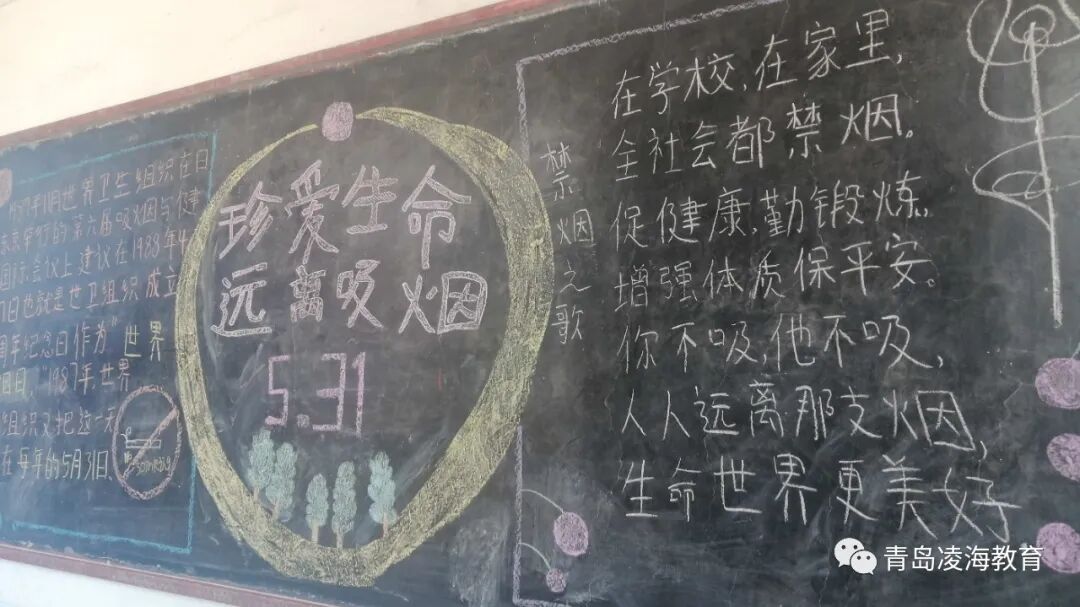 1987年11月世界卫生组织在日
东京举行的第六届吸烟与健
国际会议上建议在1988年4
7日也就是世卫组织成立
周年纪念日作为"世界
日日,"1987年世界
组织又把这一天
在每年的5月31日、
珍爱生命
远离吸烟
5.31
禁烟之歌
在学校,在家里,
全社会都禁烟。
促健康,勤锻炼。
增强体质保平安。
你不吸,他不吸,
人人远离那支烟,
生命世界更美好
青岛凌海教育